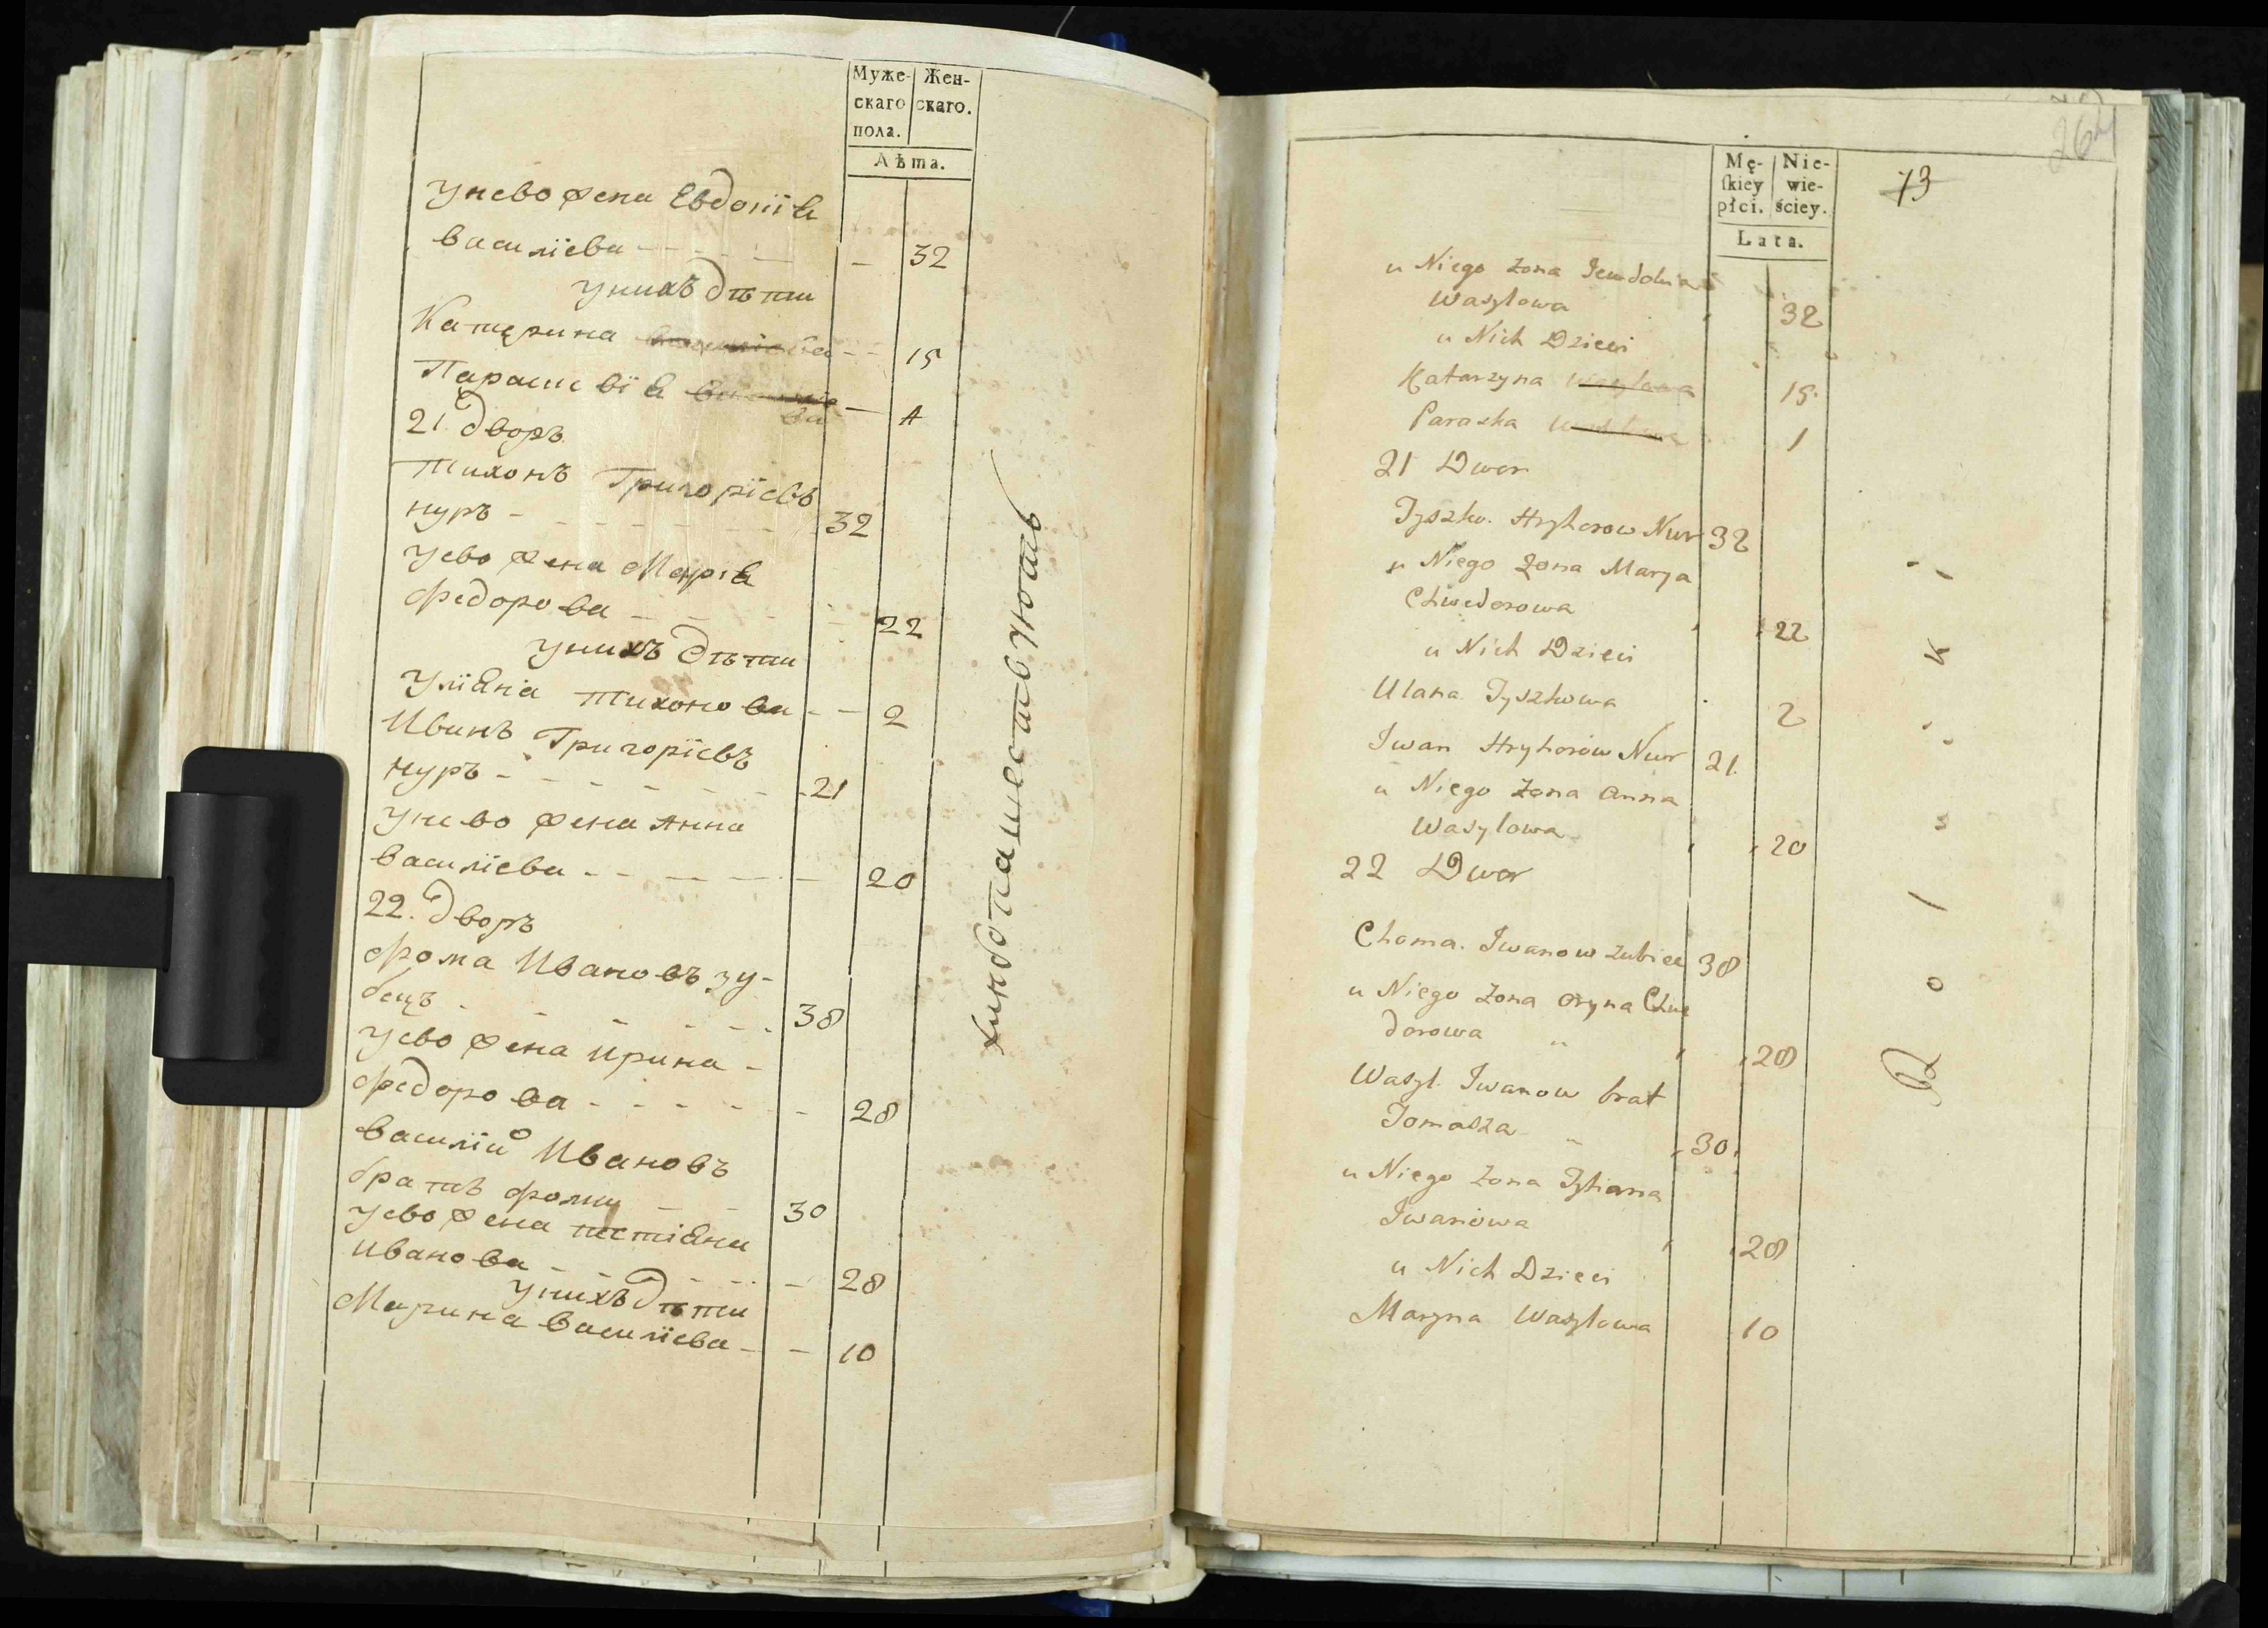 Муже-
скаго
пола.
Жен-
скаго.
Лѣта.
У нево жена Евдокія
Василіева - - - - 32
У нихъ дѣти
Катерина - - 15
Парасквія
21. дворъ
Тихонъ Григоріевъ
Нуръ - - - - 32
У ево жена Марія
Федорова - - - - 22
У нихъ дѣти
Уліяна Тихонова - - 2
Иванъ Григоріевъ
Нуръ - - - - - - 21
У нево жена Анна
Василіева - - - - - 20
22. дворъ
Фома Ивановъ Зу-
бецъ - - - - - 38
У ево жена Ирина -
Федорова - - - - - 28
Василій Ивановъ
братъ Фомы - - 30
У ево жена
Иванова - - - - - 28
У нихъ дѣти
Марина Василіева - - 10
Mę-
ſkiey
płci.
Nie-
wie-
ściey.
Lata.
73
u Niego Zona Jewdokia
Wasylowa 32
u Nich Dzieci
Katarzyna Wasylowa 15
Paraska 1
21 Dwor
Tyszko. Hryhorow Nur 32
u Niego Zona Marya
Chwedorowa 22
u Nich Dzieci
Ulana Tyszkowa 2
Iwan Hryhorow Nur 21.
u Niego Zona Anna
Wasylowa 20
22 Dwor
Choma. Iwanow Zubiec 38
u Niego Zona Oryna Chwe
dorowa 28
Wasyl. Iwanow brat
Tomasza 30
u Niego Zona
Iwanowa 28
u Nich Dzieci
Maryna Wasylowa 10